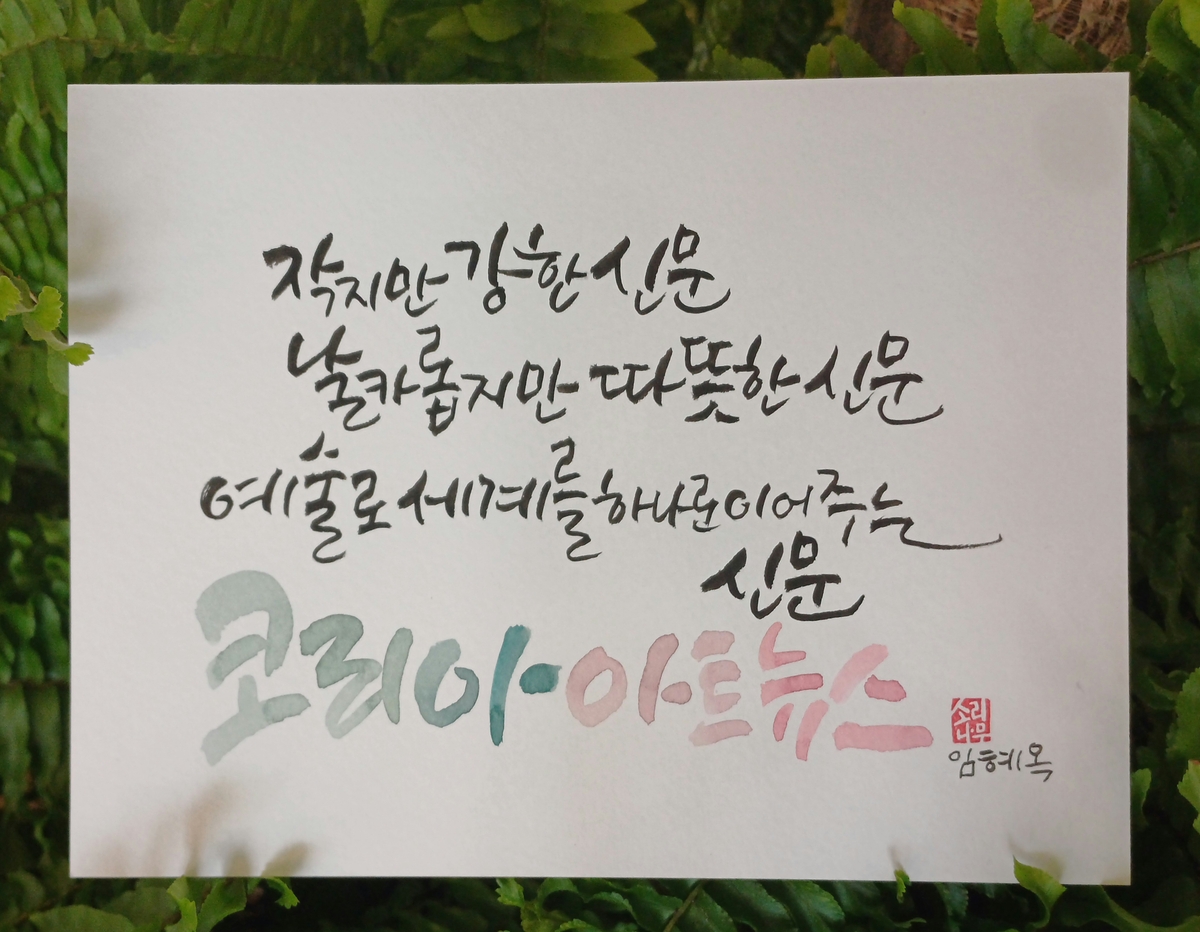 작지만 강한 신문
날카롭지만 따뜻한 신문
예술로 세계를 하나로 이어주는
신문
코리아 아트뉴스
소리
나무
임혜옥